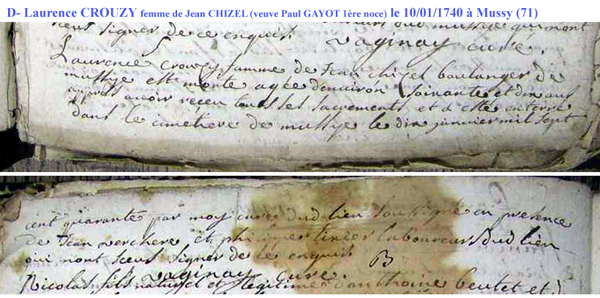 D- Laurence CROUZY femme de Jean CHIZEL (veuve Paul GAYOT 1ère noce) le 10/01/1740 à Mussy (71)
signer de ce enquis
vaginay curé.
Laurence Crouzy famme de Jean chizel boulanger de
mussye est morte agée denuiron soixante et dix ans
appres auoir receu tous les sacrements, et a esté enterré
dans le cimetiere de mussye le dix janvier mil sept
cent quarante par moy curé dud lieu soussigné en presence
de Jean verchere et philipe tixier laboureurs dud lieu
qui nont sceus signer de ce enquis
vaginay curé.
Nicolas fils naturel et legitime danthoine beutet et